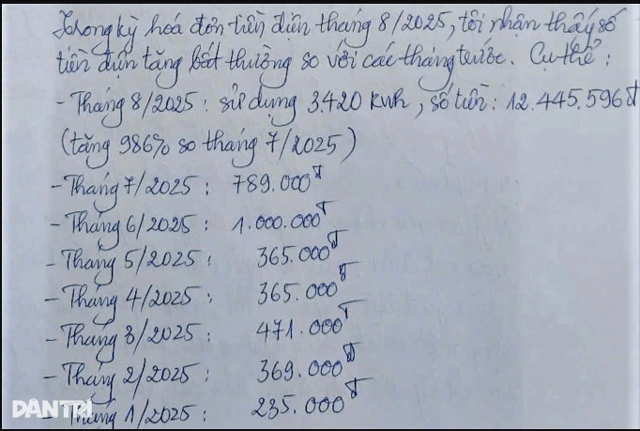 Trong kỳ hoá đơn tiền điện tháng 8/2025, tôi nhận thấy số
tiền điện tăng bất thường so với các tháng trước. Cụ thể:
- Tháng 8/2025: sử dụng 3.420 kwh, số tiền: 12.445.596đ
(tăng 986% so tháng 7/2025)
- Tháng 7/2025: 789.000đ
- Tháng 6/2025: 1.000.000đ
- Tháng 5/2025: 365.000đ
- Tháng 4/2025: 365.000đ
- Tháng 3/2025: 471.000đ
- Tháng 2/2025: 369.000đ
- Tháng 1/2025: 235.000đ
DANTRI